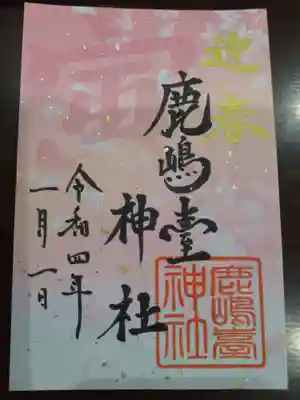 迎春
鹿嶋臺
神社
令和四年
一月一日
鹿嶋臺
神社